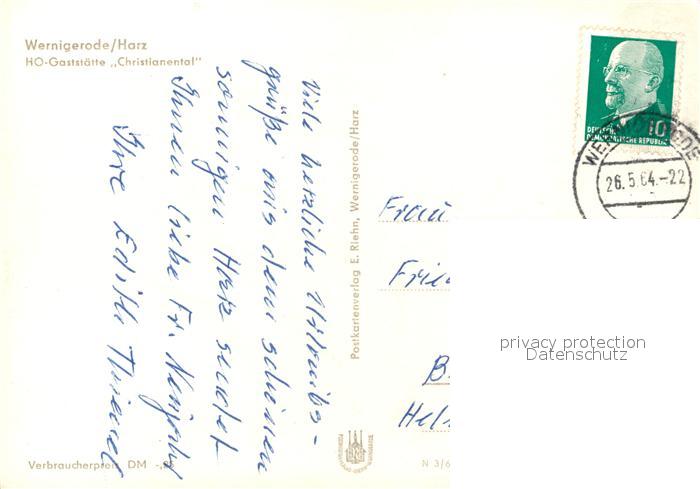 Wernigerode/Harz
HO-Gaststätte „Christianental"
Viele herzliche Urlaubs-
grüße aus dem schönen
sonnigen Harz sendet
Ihnen liebe Fr.
Ihre Edith
Verbraucherpreis DM -,25
Postkartenverlag E. Riehn, Wernigerode/Harz
N 3/6
DEUTSCHE
DEMOKRATISCHE REPUBLIK
10
WERNIGERODE
26.5.64.-22
Frau
Frie
B
Hel
privacy protection
Datenschutz